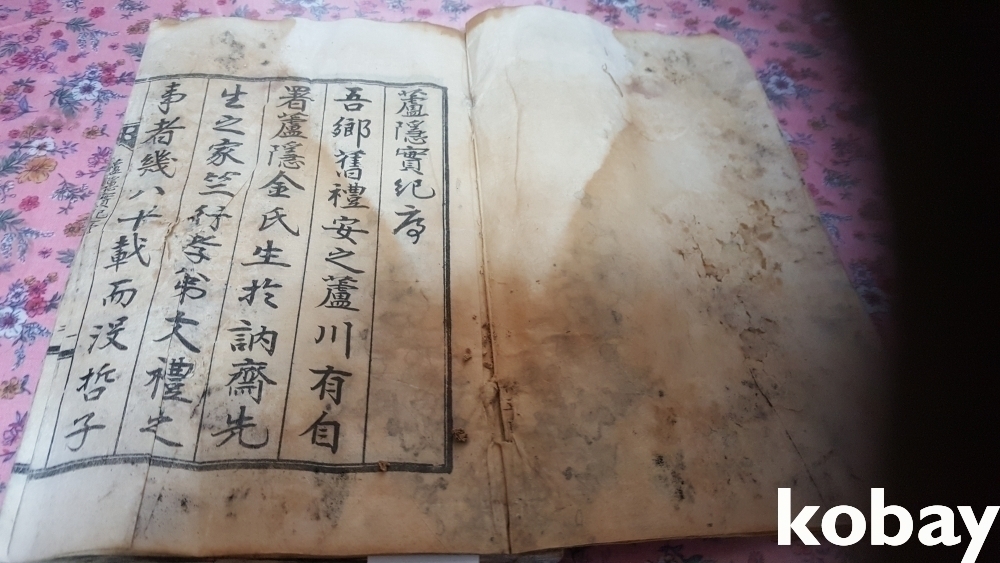 蘆隱實紀序
吾鄉舊禮安之蘆川有自
署蘆隱金氏生於訥齋先
生之家竺行孝弟大禮之
事者幾八十載而沒哲子
蘆隱實紀序
kobay